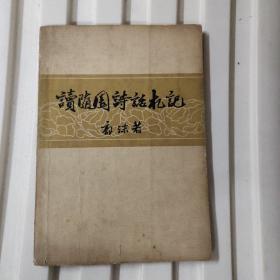 讀隨园詩話札記
郭沫若